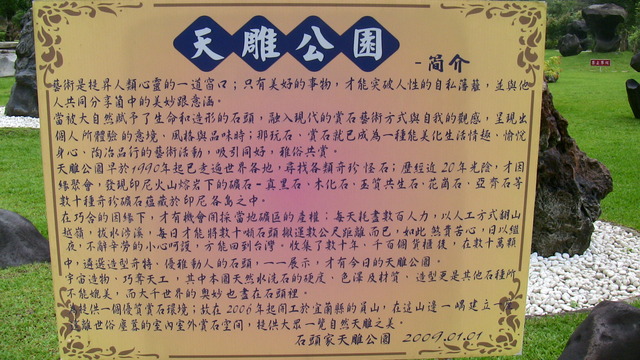 天雕公園
-简介
藝術是提昇人類心靈的一道窗口;只有美好的事物,才能突破人性的自私藩籬,並與他
人共同分享箇中的美妙跟意涵。
當被大自然賦予了生命和造形的石頭,融入現代的賞石藝術方式與自我的觀感,呈現出
個人所體驗的意境、風格與品味時;那玩石、賞石就已成為一種能美化生活情趣、愉悅
身心、陶冶品行的藝術活動,吸引同好,雅俗共賞。
天雕公園早於1990年起已走遍世界各地,尋找各類奇珍怪石;歷經近20年光陰,才因
緣聚會,發現印尼火山熔岩下的礦石-真黑石、木化石、玉質共生石、花崗石、亞齊石等
數十種奇珍礦石蘊藏於印尼各島之中。
在巧合的因緣下,才有機會開採當地礦區的產權;每天耗盡數百人力,以人工方式翻山
越嶺,拔水涉溪,每日才能將數十噸石頭搬運數公尺距離而已。如此煞費苦心,日以繼
夜,不辭辛勞的小心呵護,方能回到台灣。收集了數十年,千百個貨櫃後,在數十萬顆
中,遴選造型奇特、優雅動人的石頭,一一展示,才有今日的天雕公園。
宇宙造物,巧奪天工,其中本園天然水洗石的硬度、色澤及材質、造型更是其他石種所
不能媲美,而大千世界的奧妙也盡在石頭裡。
提供一個優質賞石環境;故在2006年起開工於宜蘭縣的員山,在這山邊一嵎建立一
離世俗塵囂的室內室外賞石空間,提供大眾一覽自然天雕之美。
石頭家天雕公園 2009.01.01